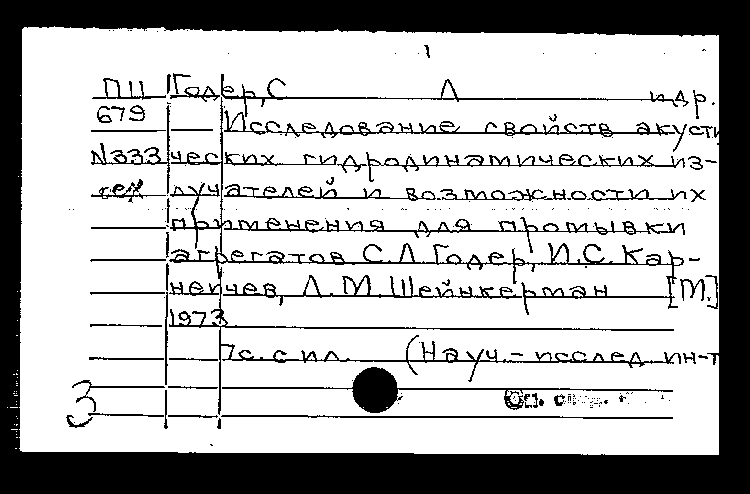 ПЦ Годер, С Л идр.
679 Исследование свойств акусти
N333 ческих гидродинамических из-
лучателей и возможности их
применения для промывки
агрегатов С.Л. Годер, И.С. Кар-
нейчев, Л.М. Шейнкерман [М.]
1973
7с. с ил. (Науч.- исслед ин-т
3